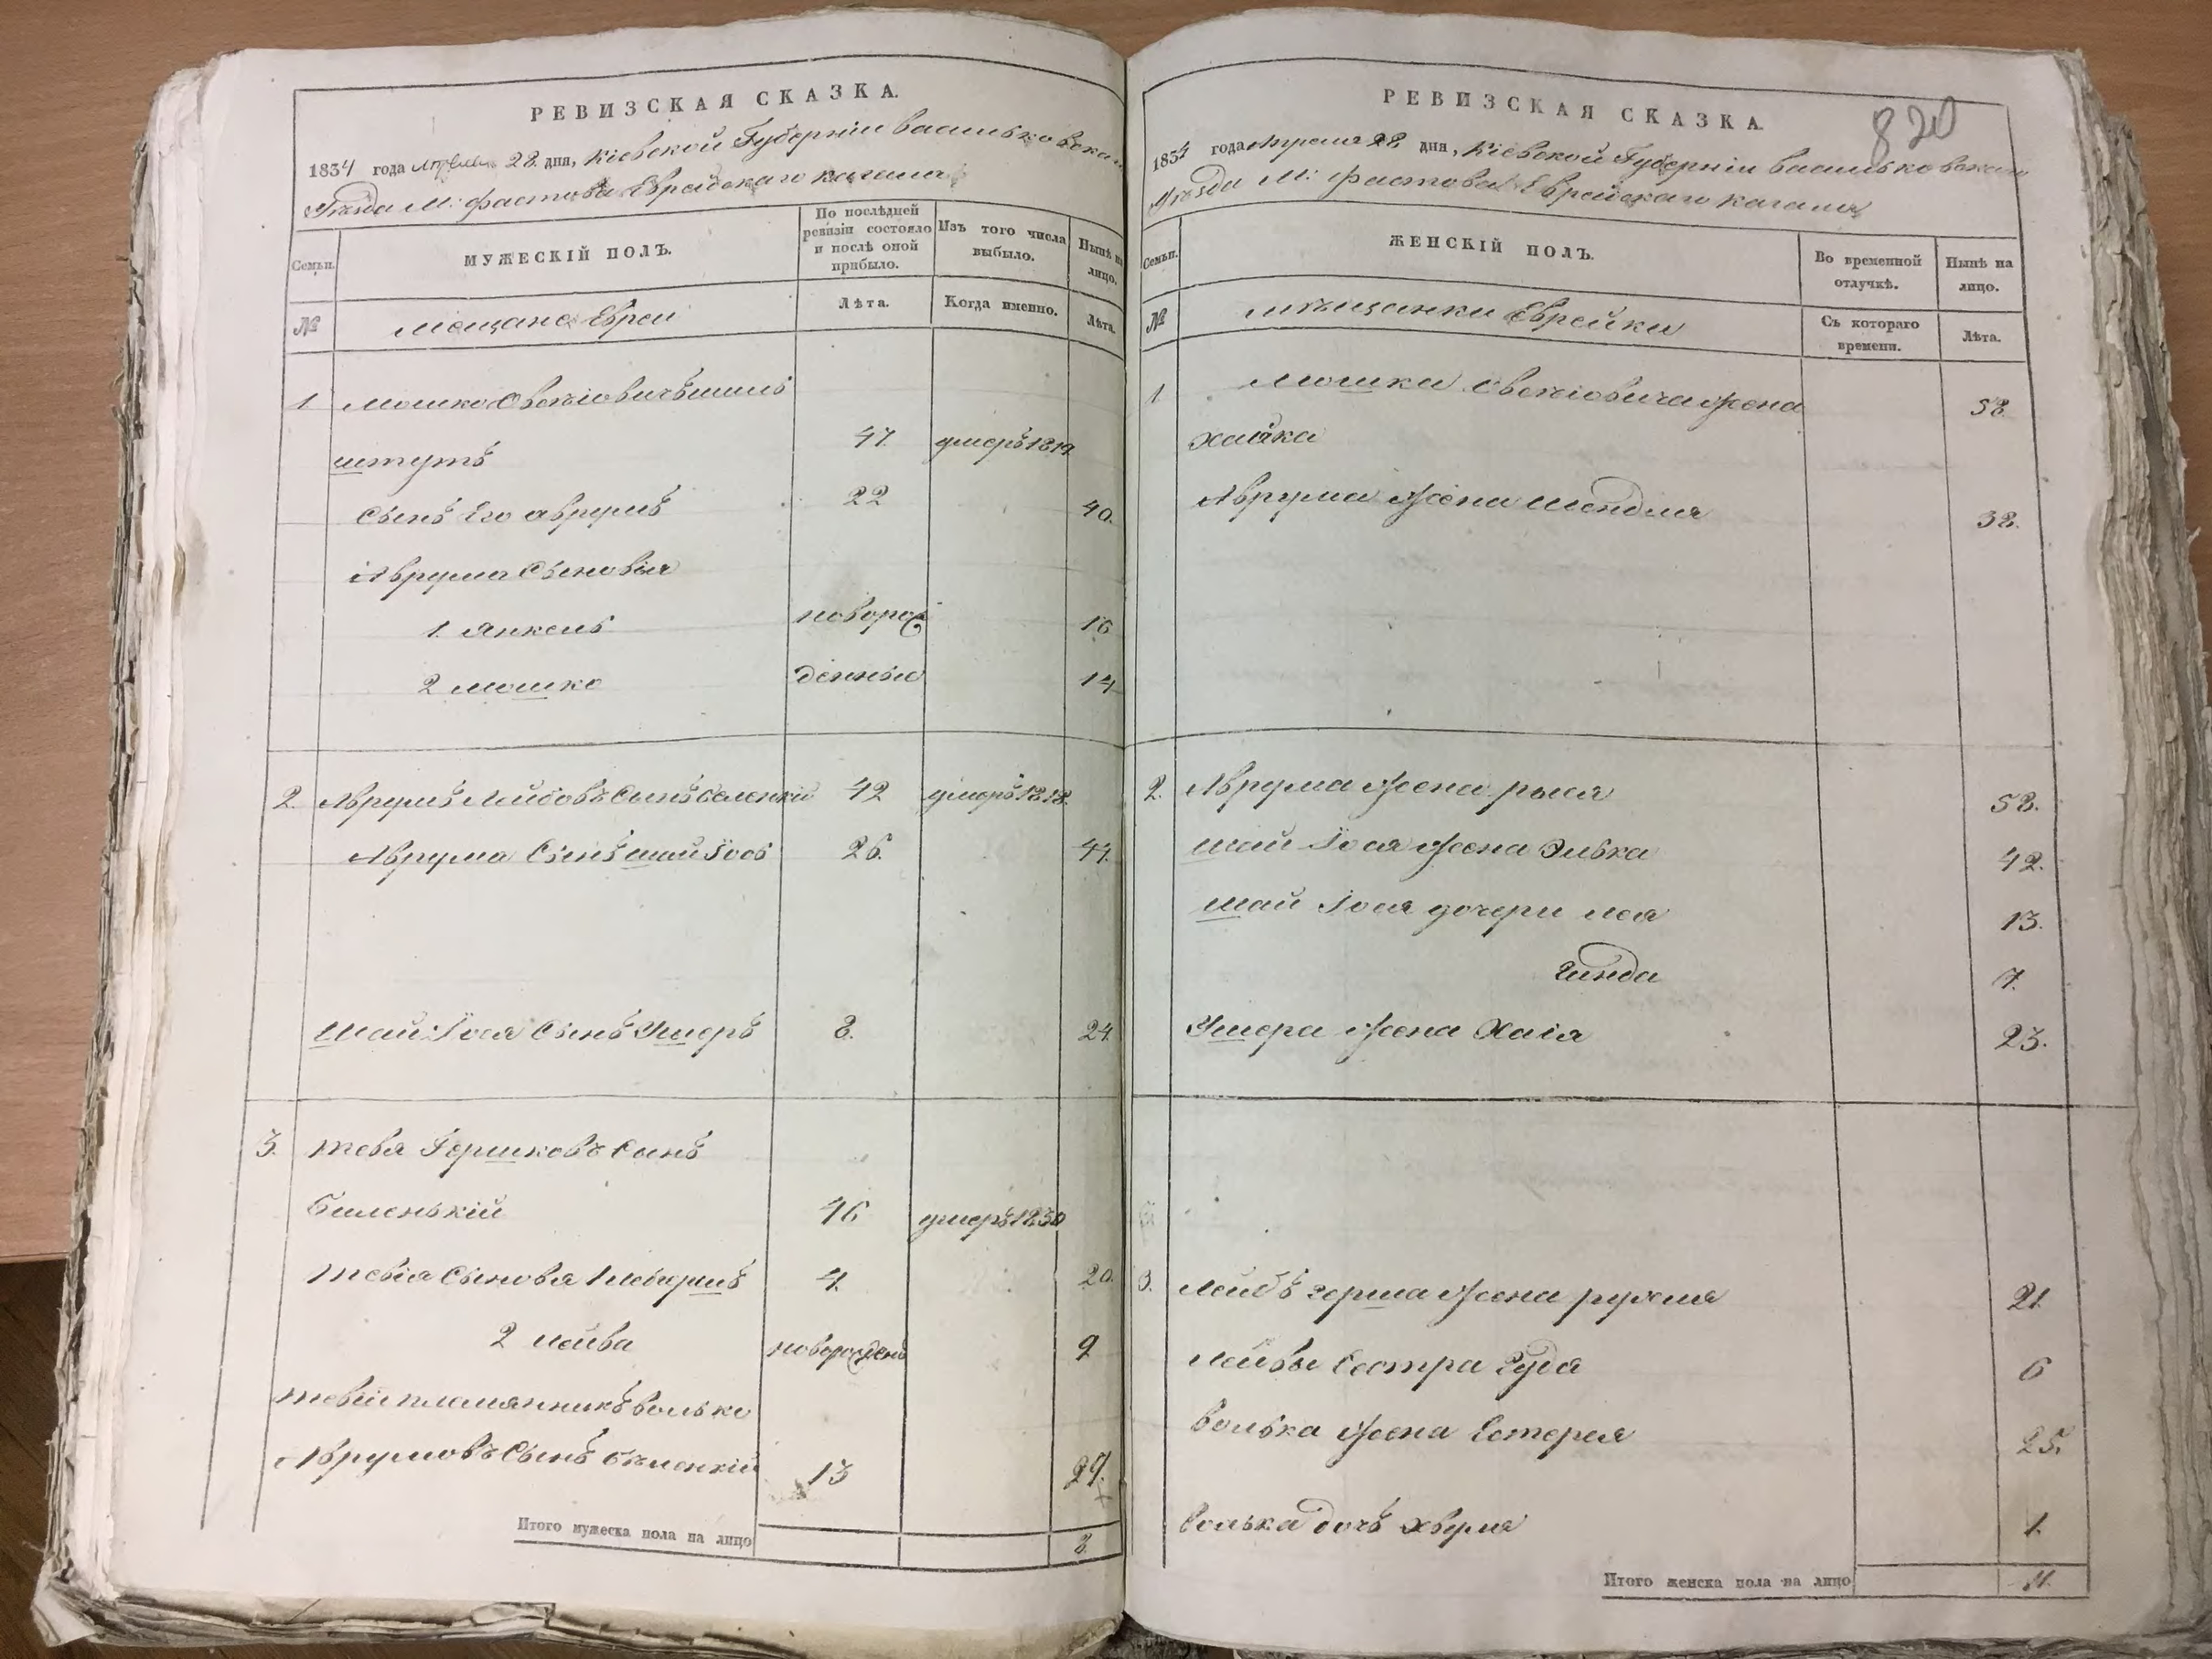 РЕВИЗСКАЯ СКАЗКА.
1834 года Апреля 28. дня, Кіевской Губерніи Васильковска
Уѣзда М: Фастова Еврейскаго кагала
Семьи.
МУЖЕСКІЙ ПОЛЪ.
По послѣдней ревизіи состояло и послѣ оной прибыло.
Изъ того числа выбыло.
Нынѣ на лицо.
№
Мещане Евреи
Лѣта.
Когда именно.
Лѣта.
1 Мошко
штутъ 47 умеръ 1819
Сынъ Его Аврумъ 22 40.
Аврума Сыновья
1 Янкель новорож 16
2 Мошко денные 14
2. Аврумъ Лейбовъ Сынъ Беленкій 42 умеръ 1818.
Аврума Сынъ Шай Іось 26. 44.
Шай: Іося Сынъ Ушеръ 8. 24.
3. Тевя Гершковъ Сынъ
Биленькій 46 умеръ 1830
Тевія Сыновя 1 4. 20.
2 Лейва новорожденъ 9
Тевіи племянникъ Волько
Аврумовъ Сынъ Бѣленкій 13 29.
Итого мужеска пола на лицо 8.
820
РЕВИЗСКАЯ СКАЗКА.
1834 года Апреля 28 дня, Кіевской Губерніи Васильковскаго
Уѣзда М: Фастова Еврейскаго кагала
Семьи.
ЖЕНСКІЙ ПОЛЪ.
Во временной отлучкѣ.
Нынѣ на лицо.
№
Мѣщанки Еврейки
Съ котораго времени.
Лѣта.
1 Мошка Жена 58
Хайка
Аврума Жена Шендля 38.
2. Аврума Жена Рыся 58.
Шай Іося Жена Элька 42.
Шай Іося дочери Лея 13.
Гинда 7.
Ушера Жена Хаія 23.
3. Лейбъ Герша Жена Рухля 21.
Лейвы Сестра Гудя 6
Волька Жена Естерея 25.
Волька дочь Хвуля 1.
Итого женска пола на лицо 11.